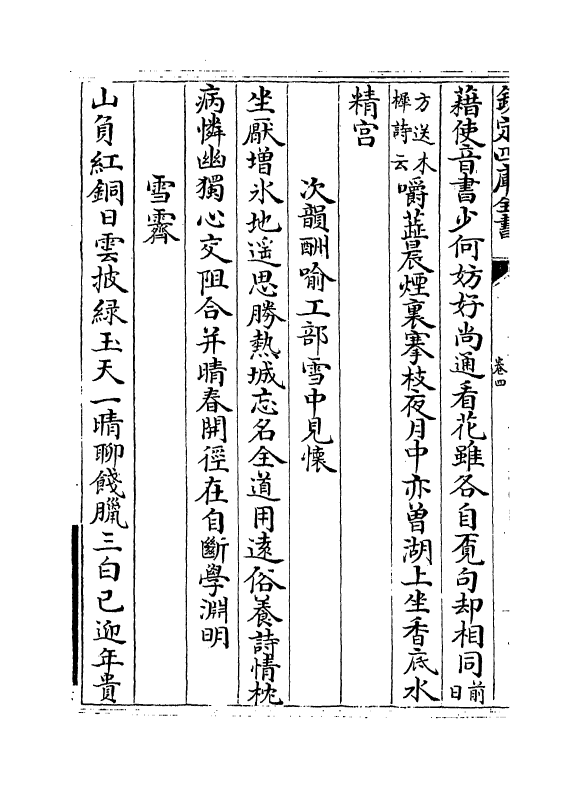 欽定四庫全書
卷四
藉使音書少何妨好尚通看花雖各自覓句却相同前日
方送木樨詩云嚼蕋晨煙裏搴枝夜月中亦曽湖上坐香底水
精宫
次韻酬喻工部雪中見懐
坐厭增氷地遥思勝熱城忘名全道用逺俗養詩情枕
病憐幽獨心交阻合并晴春開徑在自斷學淵明
雪霽
山負紅銅日雲披緑玉天一晴聊餞臘三白已迎年貴